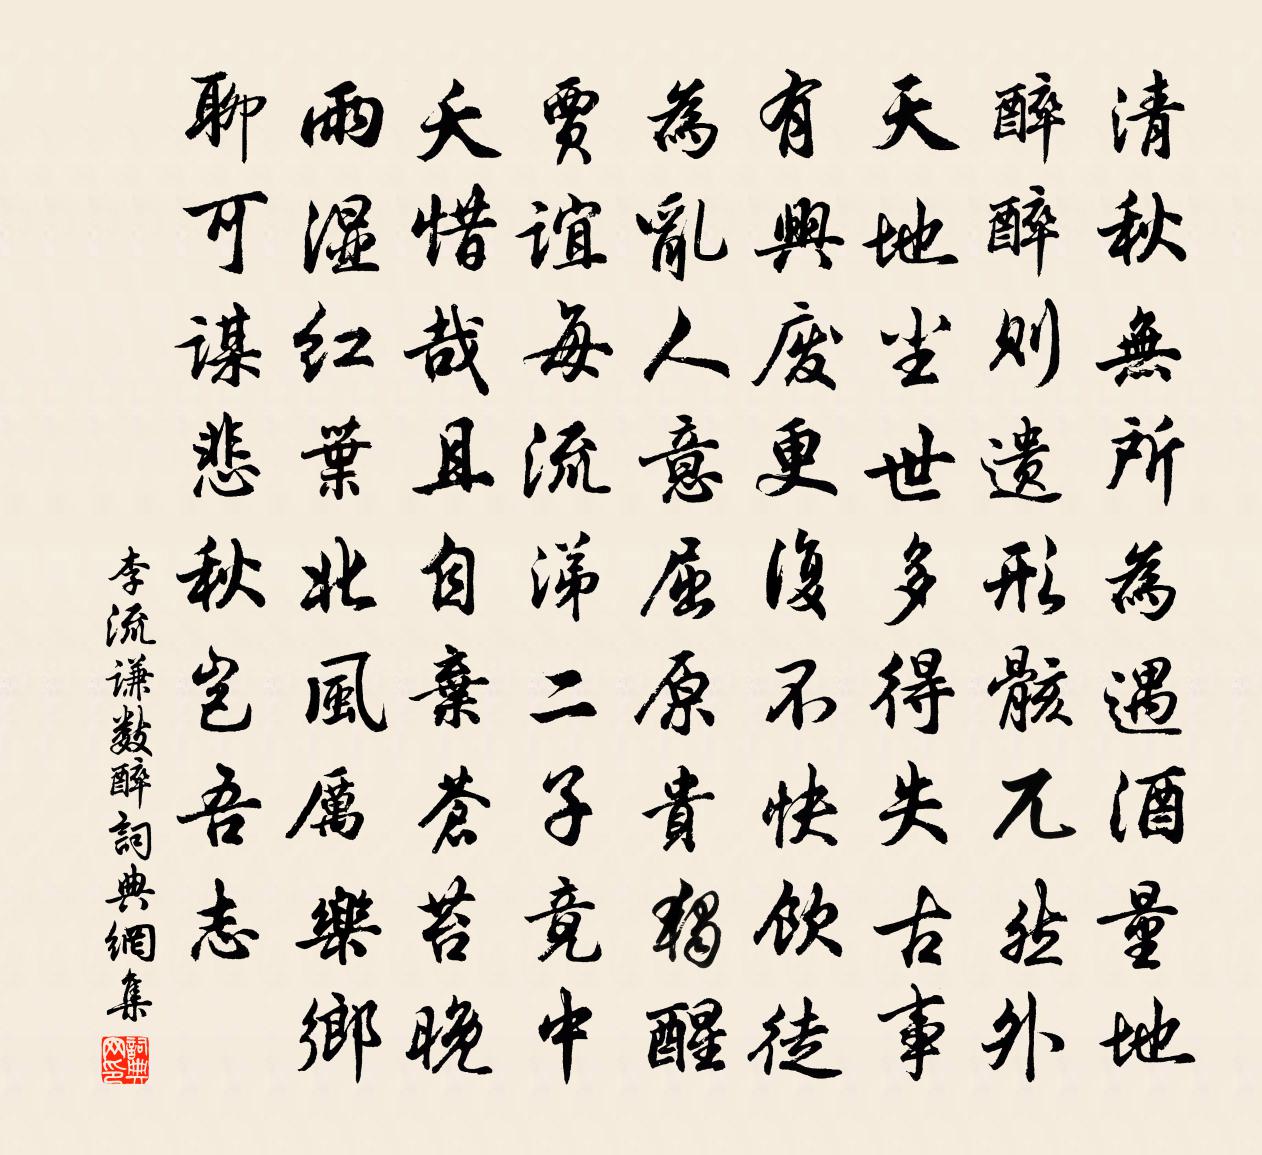 清秋無所為遇酒量地
醉醉則遺形骸兀然外
天地尘世多得失古事
有興废更復不快飲徒
為亂人意屈原貴獨醒
賈誼每流涕二子竟中
夭惜哉且自棄蒼苔晚
雨湿红葉北風厲樂鄉
聊可謀悲秋岂吾志
李流谦数醉詞典網集
詞典网印